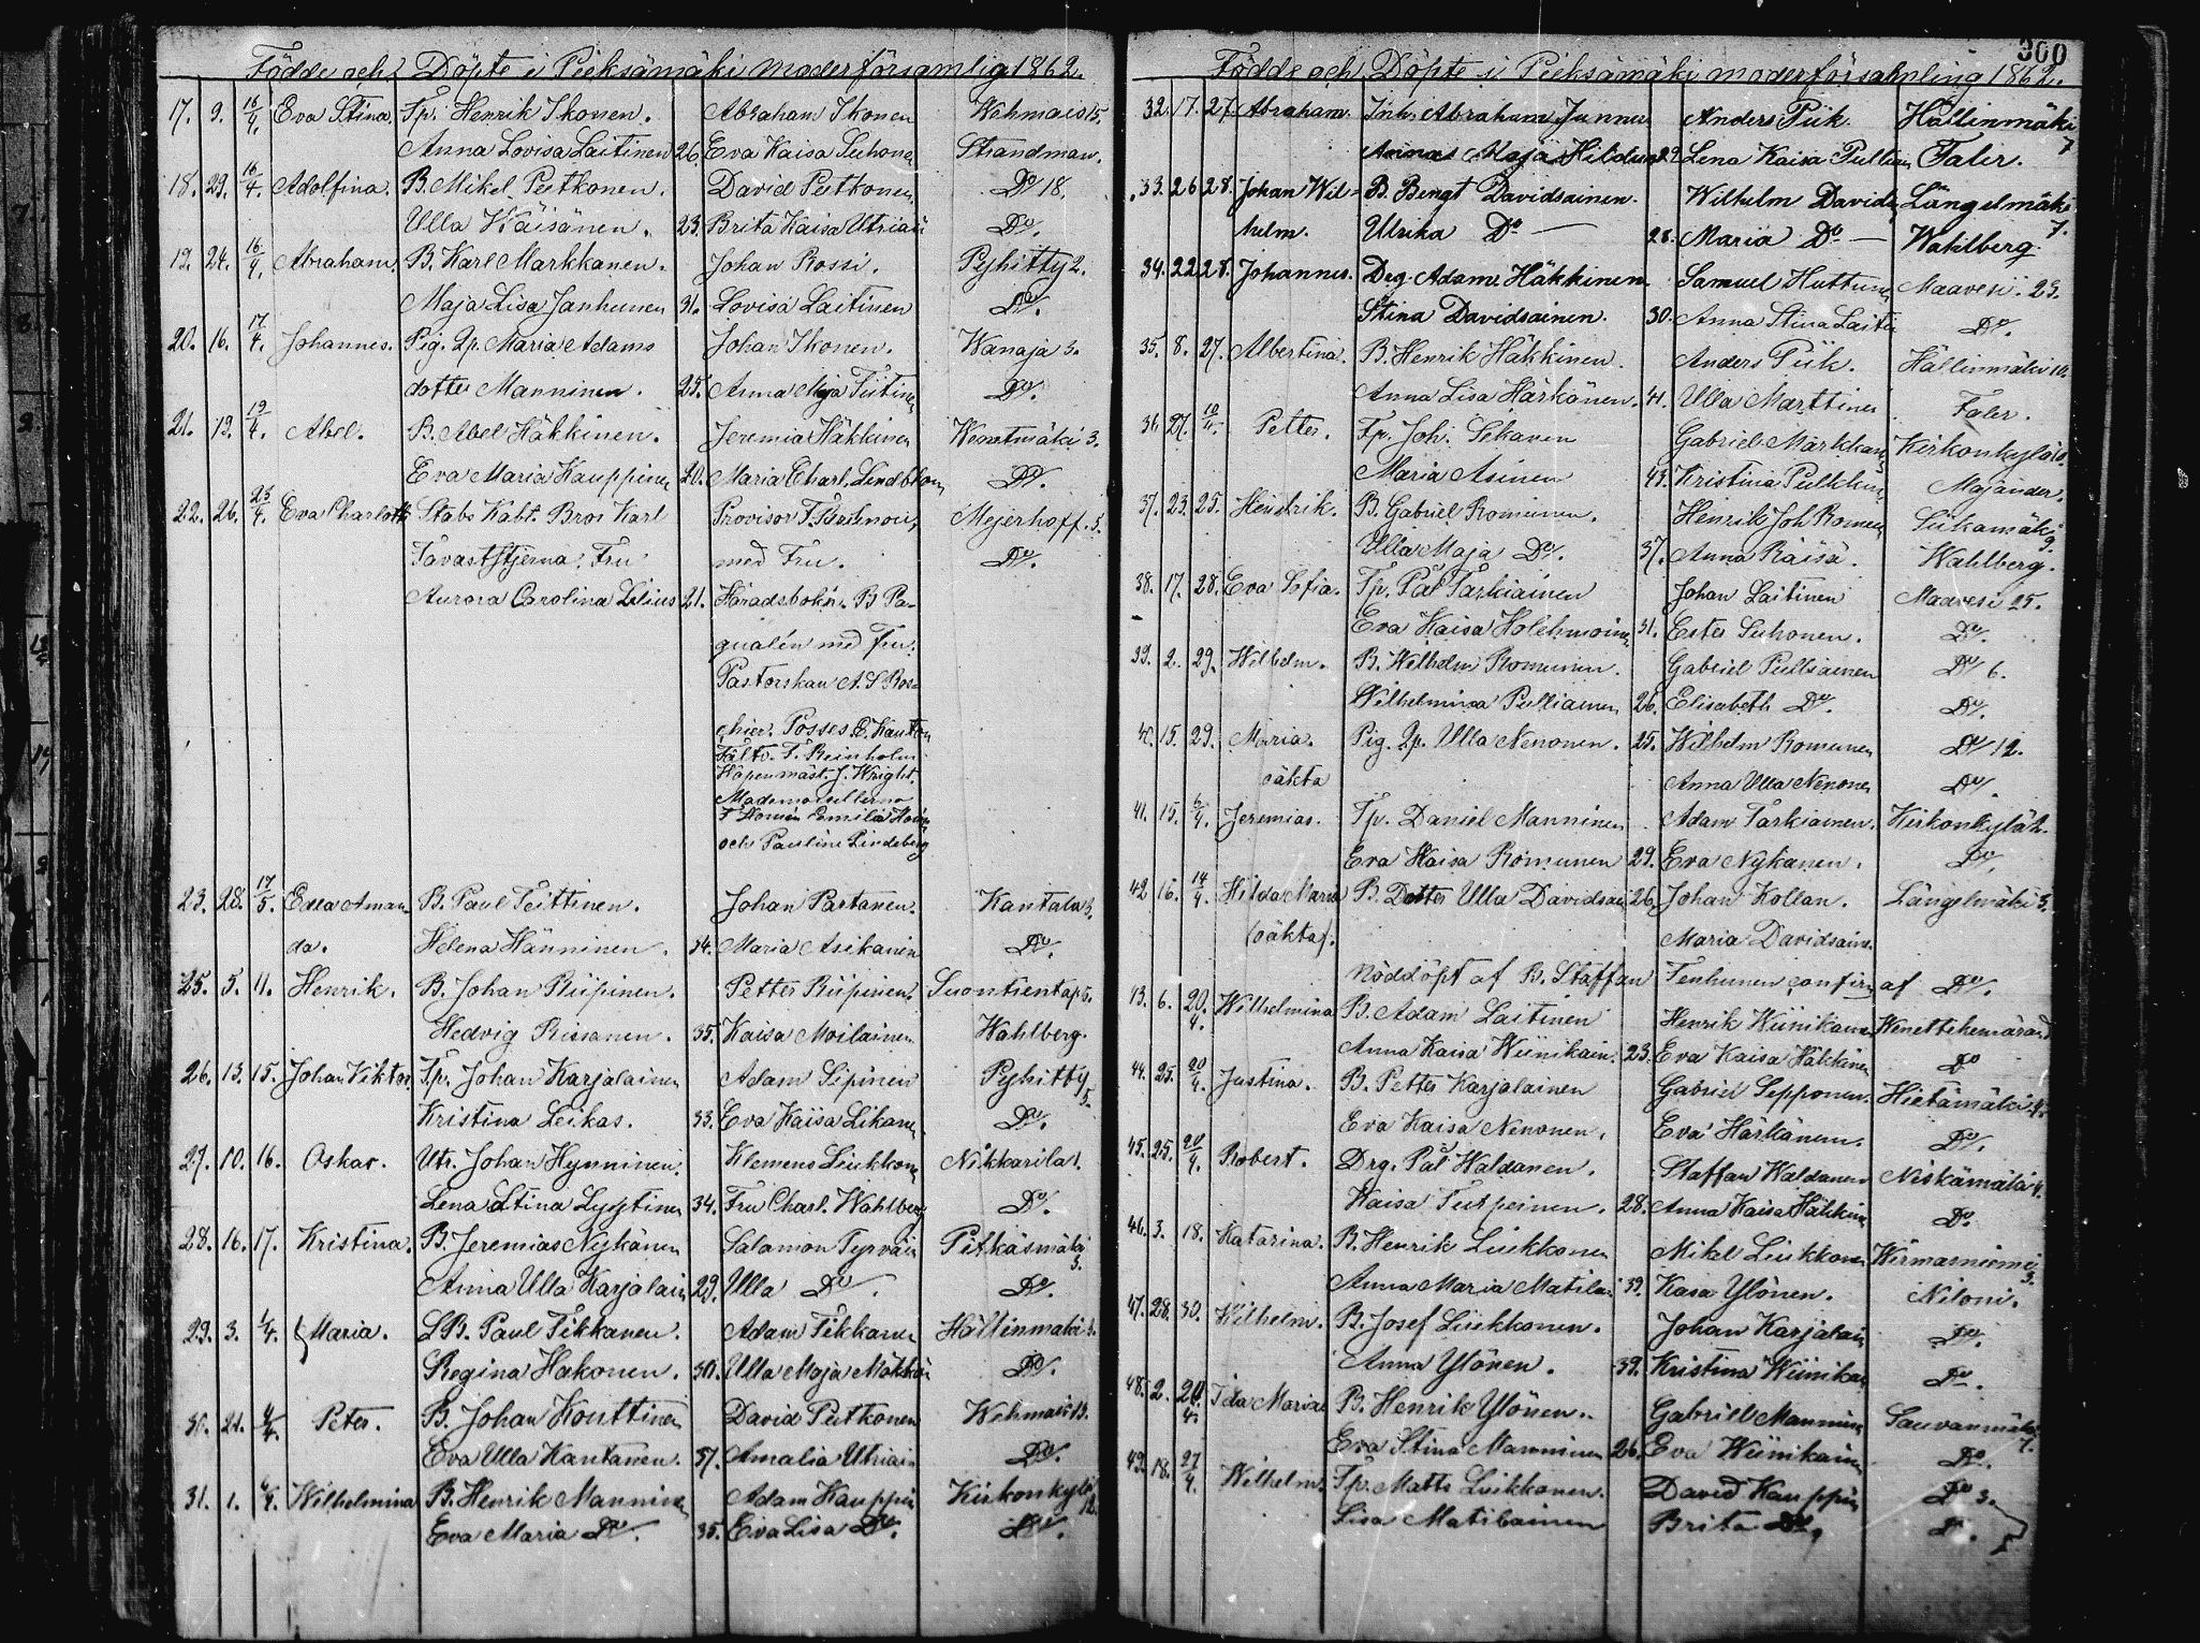 Födde och Döpte i Pieksämäki moderförsamlig 1862.
17. 9. 16/4. Eva Stina. Tp. Henrik Ikonen. Abraham Ikonen Wehmais 15.
Anna Lovisa Laitinen 26. Eva Kaisa Suhonen Strandman.
18. 29. 16/4. Adolfina. B. Mikel Peitkonen. David Peitkonen Do 18.
Ulla Käisänen. 23. Brita Kaisa Utriain Do.
19. 24. 16/4. Abraham. B. Karl Markkanen. Johan Rossi. Pyhitty 2.
Maja Lisa Janhunen 31. Lovisa Laitinen Do.
20. 16. 17/4. Johannes. Pig. Qp. Maria Adams Johan Ikonen. Wanaja 3.
dotter Manninen. 25. Anna Maja Tiitinen Do.
21. 19. 19/4. Abel. B. Abel Häkkinen. Jeremia Häkkinen 3.
Eva Maria Kauppinen 20. Maria Charl. Lindblom Do.
22. 26. 23/4. Eva Charlott Stabs Kapt. Bror Karl Provisor F. Mejerhoff. 3.
Tavaststjerna. Fru med Fru. Do.
Aurora Carolina Lilius 21. Häradsbokh. B Pa-
qualén med Fru.
Pastorskan A. S Ros-
chier. Posses. E. Kanton
Fältv. F. Reinholm
Kapenmäst. J. Wright.
Mademoisellerna
F Homén Emilia Homén
och Pauline Lindeberg
23. 28. 17/5. Edla Aman- B. Paul Teittinen. Johan Partanen. Kantala 3.
da. Helena Hänninen. 34. Maria Asikanin Do.
25. 5. 11. Henrik. B. Johan Riipinen. Petter Riipinen. Suontientap 5.
Hedvig Rissanen. 35. Kaisa Moilainen Wahlberg.
26. 13. 15. Johan Viktor. Tp. Johan Karjalainen Adam Sipinen Pyhitty 5.
Kristina Leikas. 33. Eva Kaisa Likanen Do.
27. 10. 16. Oskar. Utr. Johan Hynninen. Klemens Liukkonen Nikkarila 1.
Lena Stina Lyytinen 34. Fru Charl. Wahlberg Do.
28. 16. 17. Kristina. B. Jeremias Nykänen Salamon Tyrväin Pitkäsmäki 3.
Anna Ulla Karjalain 29. Ulla Do. Do.
29. 3. 6/4. Maria. LB. Paul Tikkanen. Adam Tikkanen Hällinmäki 3.
Regina Hakonen. 30. Ulla Maja Do.
30. 21. 6/4. Peter. B. Johan Kouttinen David Putkonen Wehmais 13.
Eva Ulla Kantanen. 37. Amalia Utriain Do.
31. 1. 6/4. Wilhelmina B. Henrik Manninen Adam Kauppin Kirkonkylä 12.
Eva Maria Do. 35. Eva Lisa Do. Do.
300
Födde och Döpte i Pieksämäki moderförsamling 1862.
32. 17. 27. Abraham. Inh. Abraham Junnun Anders Piik. Hällinmäki 7
Anna Maja 29 Lena Kaisa Pullian Faler.
33. 26 28. Johan Wil- B. Bengt Davidsainen. Wilhelm Davids Längelmäki 7.
helm. Ulrika Do — 28. Maria Do — Wahlberg.
34. 22 28. Johannes. Drg. Adam Häkkinen Samuel Huttunen Maavesi. 23.
Stina Davidsainen. 30. Anna Stina Laiti Do.
35. 8. 27. Albertina. B. Henrik Häkkinen. Anders Piik. Hällinmäki 10.
Anna Lisa Härkönen. 41. Ulla Marttinen Faler.
36. 27. Petter. Tp. Joh. Sikanen Gabriel Markkan Kirkonkylä 10.
Maria Asinen 43. Kristina Pulkkin Majander.
37. 23. 25. Hendrik. B. Gabriel Romunen. Henrik Joh Romun Siikamäki 9.
Ulla Maja Do. 37. Anna Räisä. Wahlberg.
38. 17. 28. Eva Sofia. Tp. Pål Tarkiainen Johan Laitinen Maavesi 25.
Eva Kaisa Holehmoinen 31. Ester Suhonen. Do.
39. 2. 29. Wilhelm. B. Wilhelm Romunen. Gabriel Pulliainen Do 6.
Wilhelmina Pulliainen 26. Elisabeth Do. Do.
40. 15. 29. Maria. Pig. Qp. Ulla Nenonen. 25. Wilhelm Romunen Do 12.
oäkta Anna Ulla Nenonen Do.
41. 15. 5/4. Jeremias. Tp. Daniel Manninen Adam Tarkiainen. Kirkonkylä 2.
Eva Kaisa Romunen 29. Eva Nykänen. Do.
42 16. 14/4. Hilda Maria B. Dotter Ulla Davidsai 26. Johan Kollan. Längelmäki 3.
(oäkta). Maria Davidsain.
Nöddöpt af B. Staffan Tenhunen confirm af Do.
43. 6. 20/4. Wilhelmina B. Adam Laitinen Henrik Wiinikainen
Anna Kaisa Wiinikain. 23. Eva Kaisa Häkkinen Do
44. 25. 20/4. Justina. B. Petter Karjalainen Gabriel Sepponen. Hietämäki 4.
Eva Kaisa Nenonen. Eva Härkänen. Do.
45. 25. 20/4. Robert. Drg. Pål Waldanen. Staffan Waldanen Niskämälä 4.
Kaisa Turpeinen. 28. Anna Kaisa Häkkin Do.
46. 3. 18. Katarina. B. Henrik Liukkonen Mikel Liukkonen Wirmasniemi 3.
Anna Maria Matilai 39. Kasa Ylönen. Niloni.
47. 28. 30. Wilhelm. B. Josef Liukkonen. Johan Karjalain Do.
Anna Ylönen. 39. Kristina Wiinikai Do.
48. 2. 20/4. Ida Maria B. Henrik Ylönen. Gabriel Manninen Sauvanmäki 7.
Eva Stina Manninen 26. Eva Wiinikain Do.
49. 18. 27/4. Wilhelm. Tp. Matts Liukkonen. David Kauppin Do 3.
Lisa Matilainen Brita Do. Do.